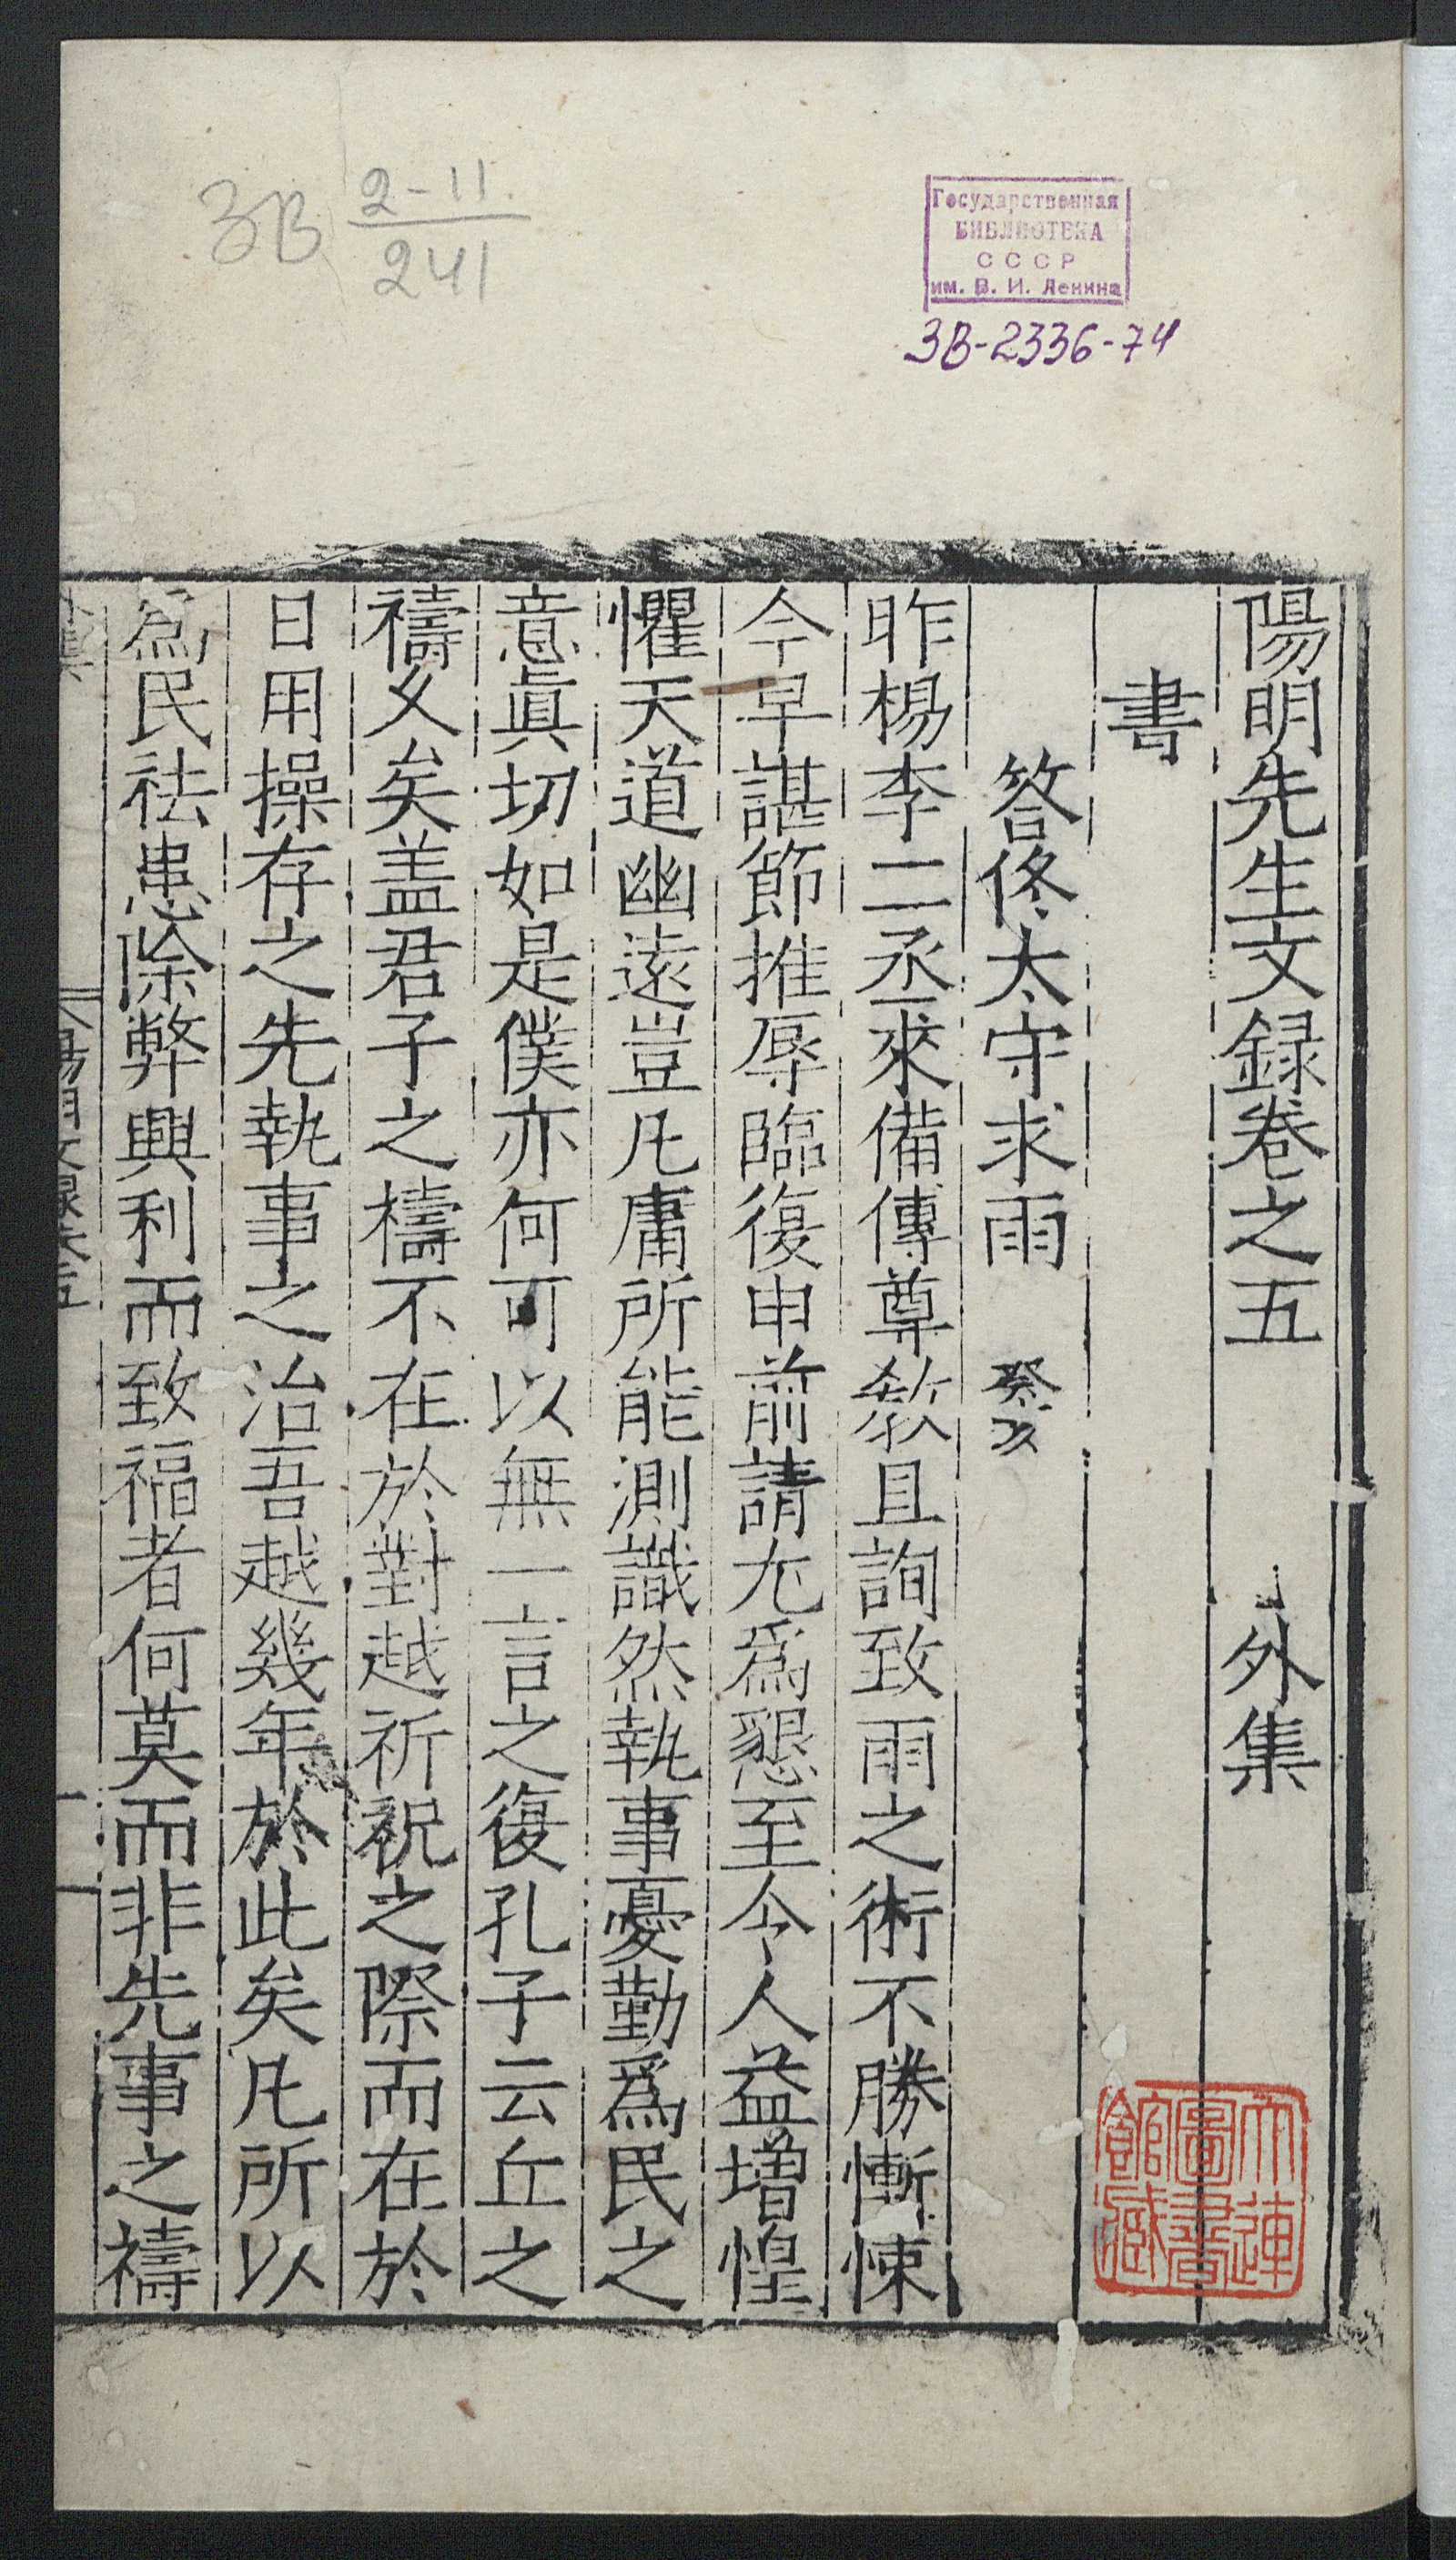 ЗВ 2-11/241
Государственная
БИБЛИОТЕКА
СССР
им. В. И. Ленина
3В-2336-74
陽明先生文録卷之五 外集
書
答佟太守求雨 癸亥
昨楊李二丞來備傳尊教且詢致雨之術不勝慚悚
今早諶節推辱臨復申前請尤爲懇至令人益增惶
懼天道幽遠豈凡庸所能測識然執事憂勤爲民之
意眞切如是僕亦何可以無一言之復孔子云丘之
禱久矣盖君子之禱不在於對越祈祝之際而在於
日用操存之先執事之治吾越幾年於此矣凡所以
爲民祛患除弊興利而致福者何莫而非先事之禱
大連
圖書
館藏